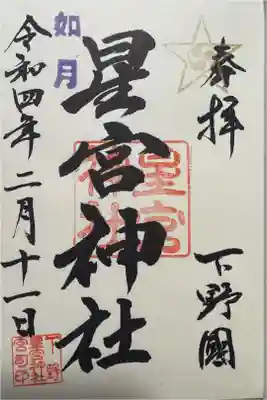 奉拝
下野國
星宮神社
星宮
神社
如月
令和四年二月十一日